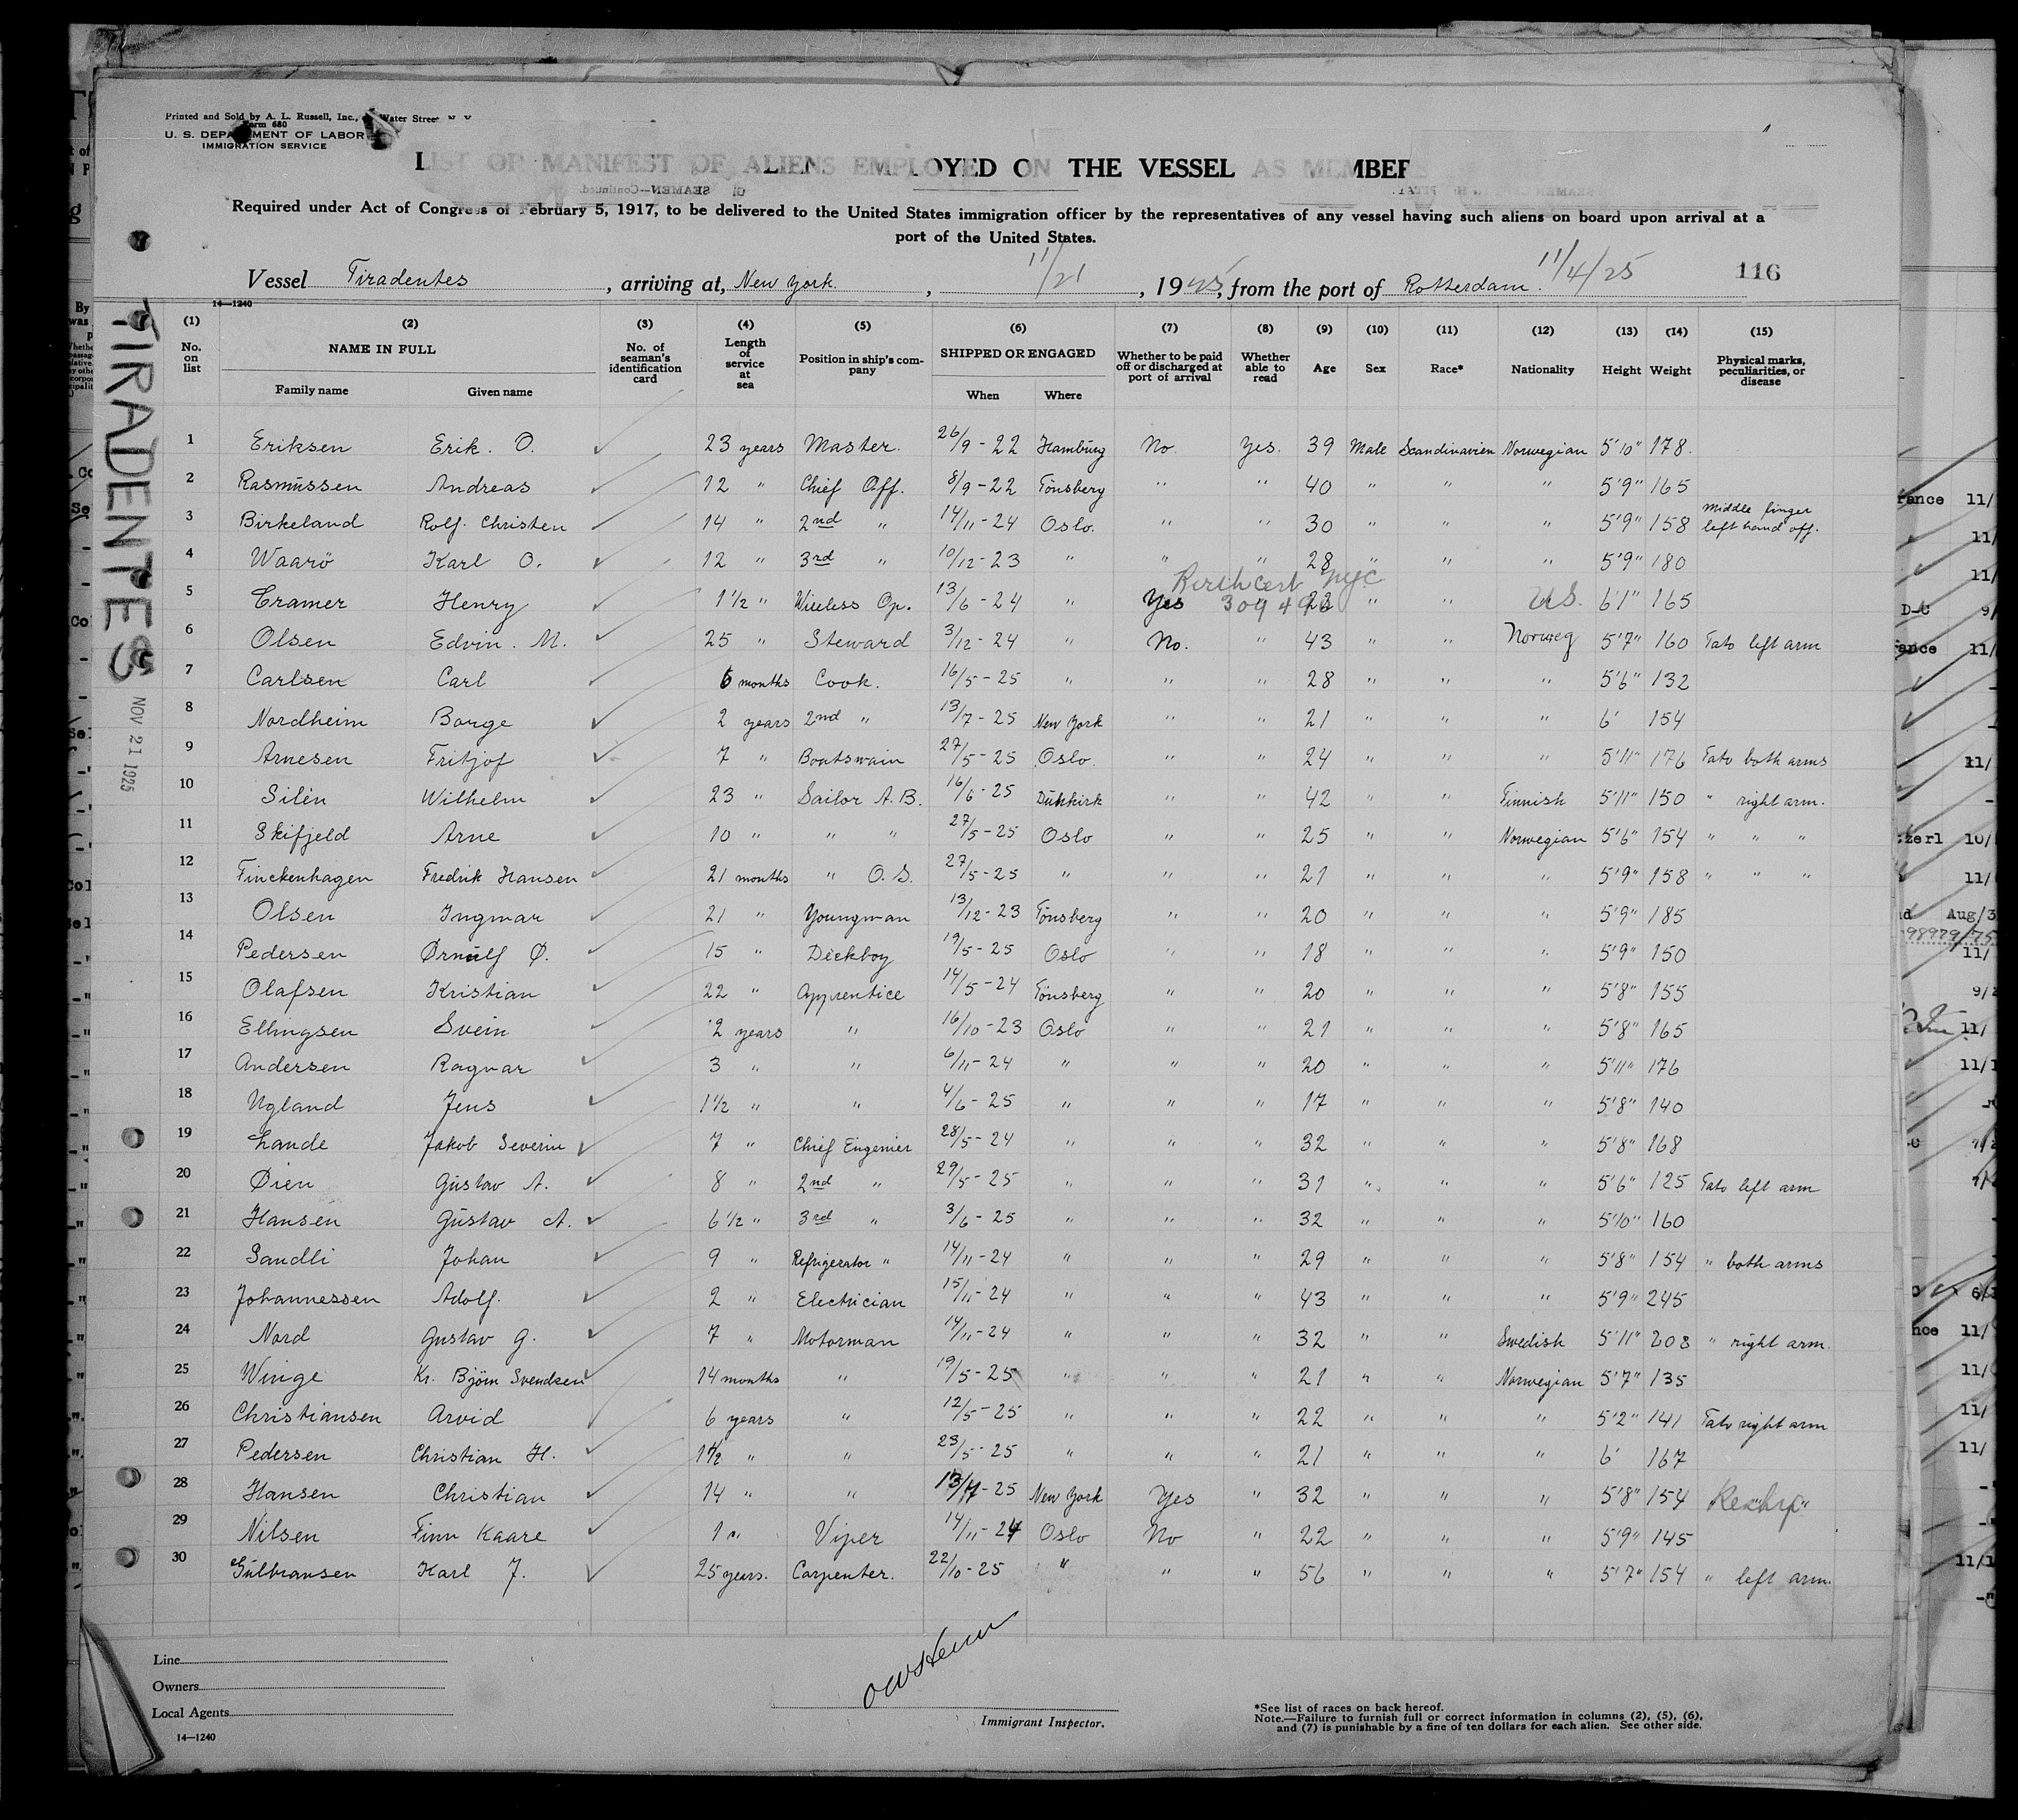 Printed and Sold by A. L. Russell, Inc., Water Street N. Y.
Form 680
U. S. DEPARTMENT OF LABOR
IMMIGRATION SERVICE
LIST OR MANIFEST OF ALIENS EMPLOYED ON THE VESSEL AS MEMBERS
Required under Act of Congress of February 5, 1917, to be delivered to the United States immigration officer by the representatives of any vessel having such aliens on board upon arrival at a
port of the United States.
Vessel Tiradentes, arriving at, New York, 11/21, 1925, from the port of Rotterdam. 11/4/25 116
14—1240
TIRADENTES NOV 21 1925
(1) (2) (3) (4) (5) (6) (7) (8) (9) (10) (11) (12) (13) (14) (15)
No. on list NAME IN FULL Family name Given name No. of seaman's identification card Length of service at sea Position in ship's company SHIPPED OR ENGAGED When Where Whether to be paid off or discharged at port of arrival Whether able to read Age Sex Race* Nationality Height Weight Physical marks, peculiarities, or disease
1 Eriksen Erik. O. ✓ 23 years Master. 26/9-22 Hamburg No. Yes. 39 Male Scandinavien Norwegian 5'10" 178.
2 Rasmussen Andreas ✓ 12 " Chief Off. 8/9-22 Tönsberg " " 40 " " " 5'9" 165
3 Birkeland Rolf. Christen ✓ 14 " 2nd " 14/11-24 Oslo. " " 30 " " " 5'9" 158 Middle finger left hand off.
4 Waarö Karl O. ✓ 12 " 3rd " 10/12-23 " " " 28 " " " 5'9" 180
Birth cert NYC
5 Cramer Henry ✓ 1 1/2 " Wireless Op. 13/6-24 " Yes 22 " " U.S. 6'1" 165
6 Olsen Edvin. M. ✓ 25 " Steward 3/12-24 " No. " 43 " " Norweg 5'7" 160 Tato left arm
7 Carlsen Carl ✓ 6 months Cook. 16/5-25 " " " 28 " " " 5'6" 132
8 Nordheim Borge ✓ 2 years 2nd " 13/7-25 New York " " 21 " " " 6' 154
9 Arnesen Fritjof ✓ 7 " Boatswain 27/5-25 Oslo. " " 24 " " " 5'11" 176 Tato both arms
10 Silén Wilhelm ✓ 23 " Sailor A.B. 16/6-25 Dünkirk " " 42 " " Finnish 5'11" 150 " right arm.
11 Skifjeld Arne ✓ 10 " " " 27/5-25 Oslo " " 25 " " Norwegian 5'6" 154 " " "
12 Finckenhagen Fredrik Hansen ✓ 21 months " O.S. 27/5-25 " " " 21 " " " 5'9" 158 " " "
13 Olsen Ingmar ✓ 21 " Youngman 13/12-23 Tönsberg " " 20 " " " 5'9" 185
14 Pedersen Ørnulf Ø. ✓ 15 " Dickboy 19/5-25 Oslo " " 18 " " " 5'9" 150
15 Olafsen Kristian ✓ 22 " Apprentice 14/5-24 Tönsberg " " 20 " " " 5'8" 155
16 Ellingsen Svein ✓ 2 years " 16/10-23 Oslo " " 21 " " " 5'8" 165
17 Andersen Ragnar ✓ 3 " " 6/11-24 " " " 20 " " " 5'11" 176
18 Ugland Jens ✓ 1 1/2 " " 4/6-25 " " " 17 " " " 5'8" 140
19 Lande Jakob Severin ✓ 7 " Chief Eugenier 28/5-24 " " " 32 " " " 5'8" 168
20 Øien Gustav A. ✓ 8 " 2nd " 29/5-25 " " " 31 " " " 5'6" 125 Tato left arm
21 Hansen Gustav A. ✓ 6 1/2 " 3rd " 3/6-25 " " " 32 " " " 5'10" 160
22 Sandli Johan ✓ 9 " Refrigerator " 14/11-24 " " " 29 " " " 5'8" 154 " both arms
23 Johannessen Adolf. ✓ 2 " Electrician 15/11-24 " " " 43 " " " 5'9" 245
24 Nord Gustav G. ✓ 7 " Motorman 14/11-24 " " " 32 " " Swedish 5'11" 202 " right arm.
25 Winge Kr. Bjöm Svendsen ✓ 14 months " 19/5-25 " " " 21 " " Norwegian 5'7" 135
26 Christiansen Arvid ✓ 6 years " 12/5-25 " " " 22 " " " 5'2" 141 Tato right arm
27 Pedersen Christian H. ✓ 1 1/2 " " 23/5-25 " " " 21 " " " 6' 167
28 Hansen Christian ✓ 14 " " 13/7-25 New York Yes " 32 " " " 5'8" 154
29 Nilsen Finn Kaare ✓ 1 " Viper 14/11-24 Oslo No " 22 " " " 5'9" 145
30 Gulbransen Karl J. ✓ 25 years. Carpenter. 22/10-25 " " " 56 " " " 5'7" 154 " left arm.
Line
Owners
Local Agents
14—1240
Immigrant Inspector.
*See list of races on back hereof.
Note.—Failure to furnish full or correct information in columns (2), (5), (6),
and (7) is punishable by a fine of ten dollars for each alien. See other side.